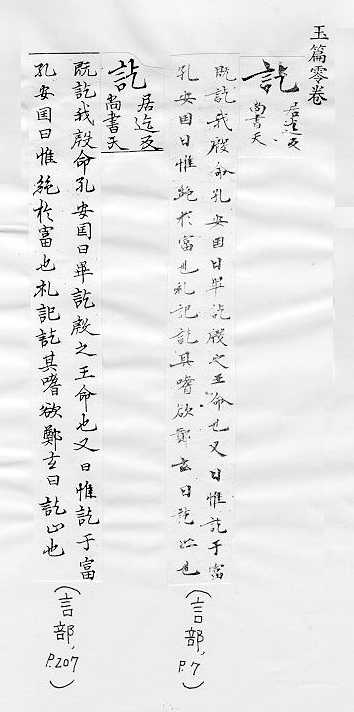 玉篇零卷
訖 居迄反
尚書天
既訖我殷命孔安国曰畢訖殷之王命也又曰惟訖于富
孔安国曰惟絶於富也礼記訖其嗜欲鄭玄曰訖止也
(言部, P.7)
訖 居迄反
尚書天
既訖我殷命孔安国曰畢訖殷之王命也又曰惟訖于富
孔安国曰惟絶於富也礼記訖其嗜欲鄭玄曰訖止也
(言部, P.207)